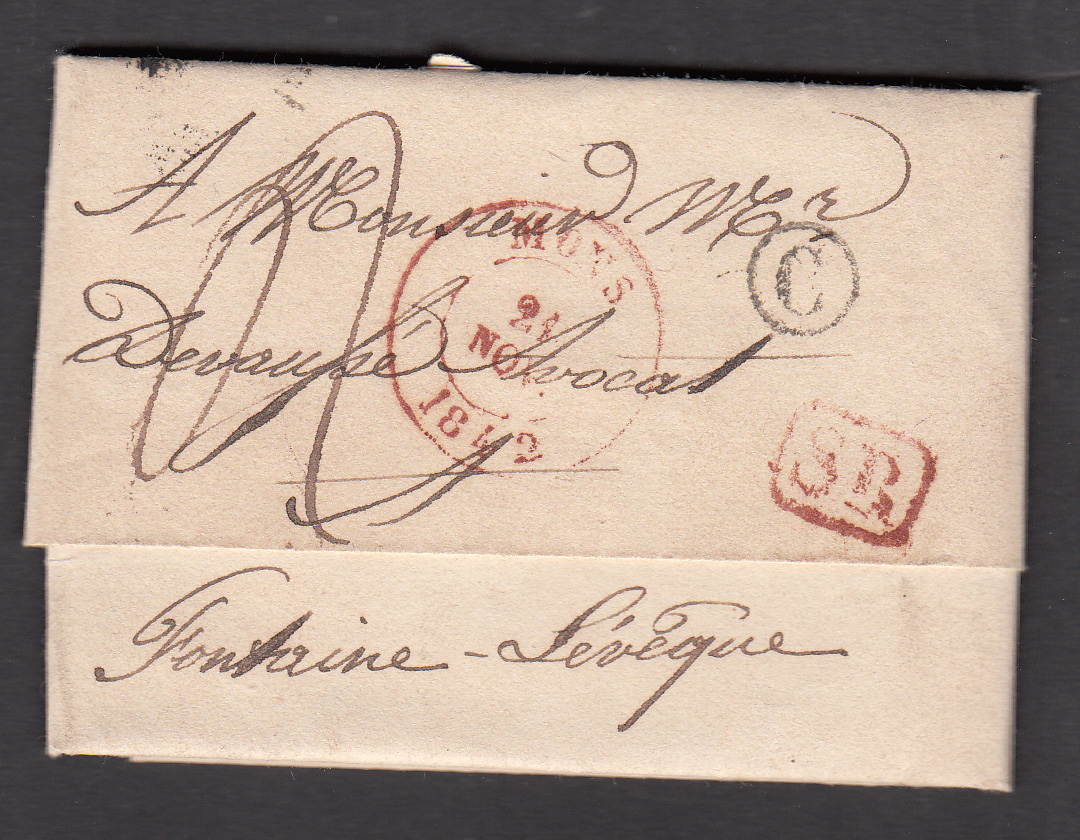 A Monsieur Mr
Avocat
à
Fontaine - Lévêque
MONS
21
NOV.
1842
C
SR